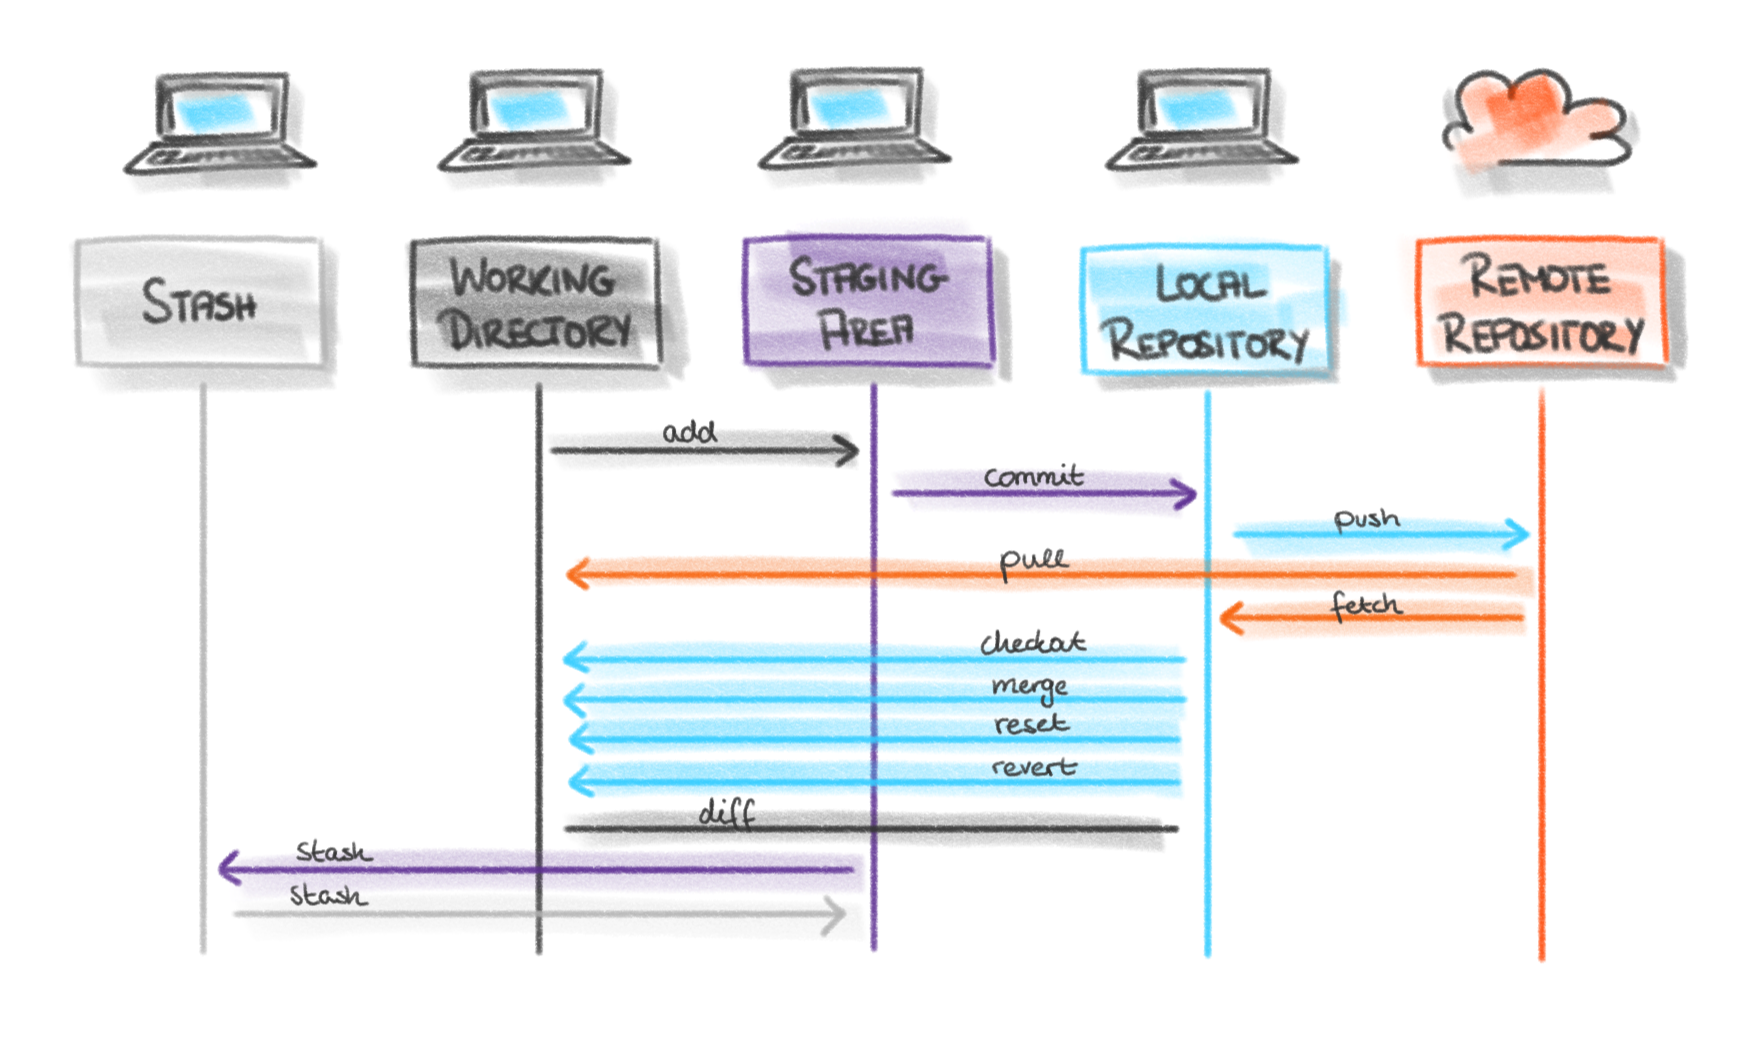 STASH
WORKING
DIRECTORY
STAGING-
AREA
LOCAL
REPOSITORY
REMOTE
REPOSITORY
add
commit
push
pull
fetch
checkout
merge
reset
revert
diff
stash
stash